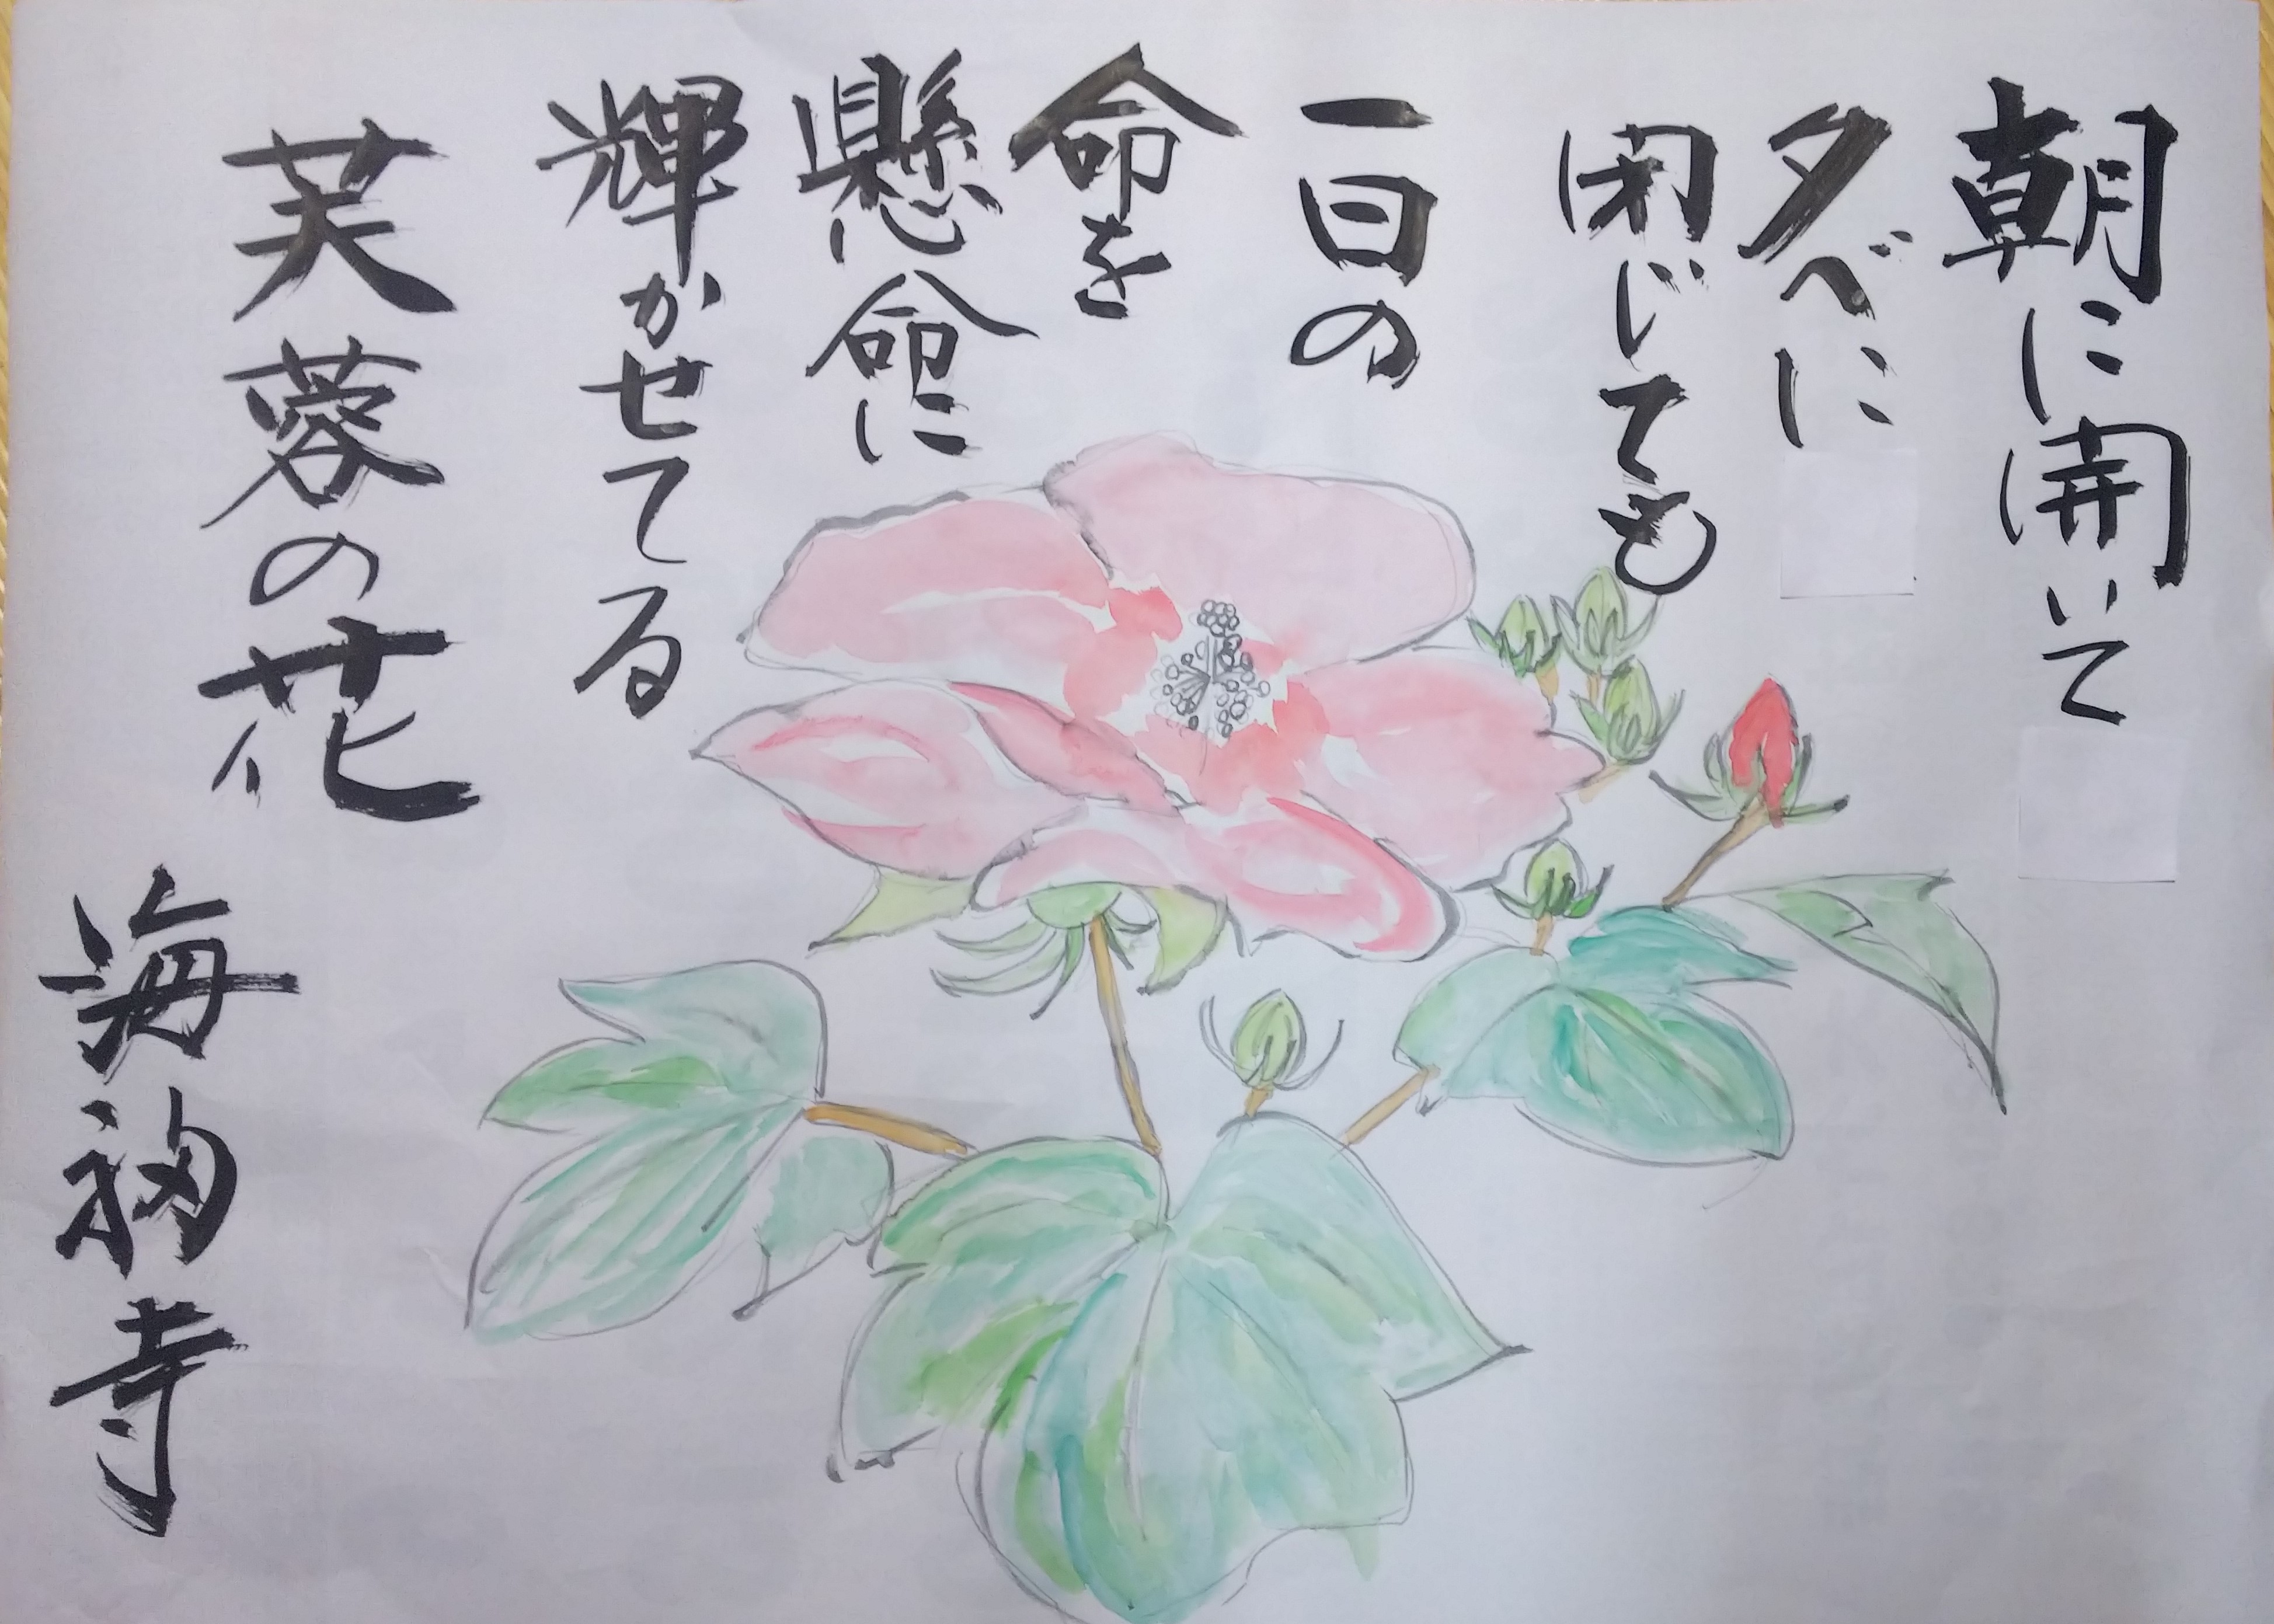 朝に開いて
夕べに
閉じても
一日の
命を
懸命に
輝かせてる
芙蓉の花
海初寺